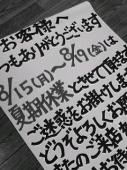 お客様へ
いつもありがとうございます
8/15(月)〜8/19(金)は
夏期休業とさせて頂きます
ご迷惑をお掛けしますが
どうぞよろしくお願い
またのご来